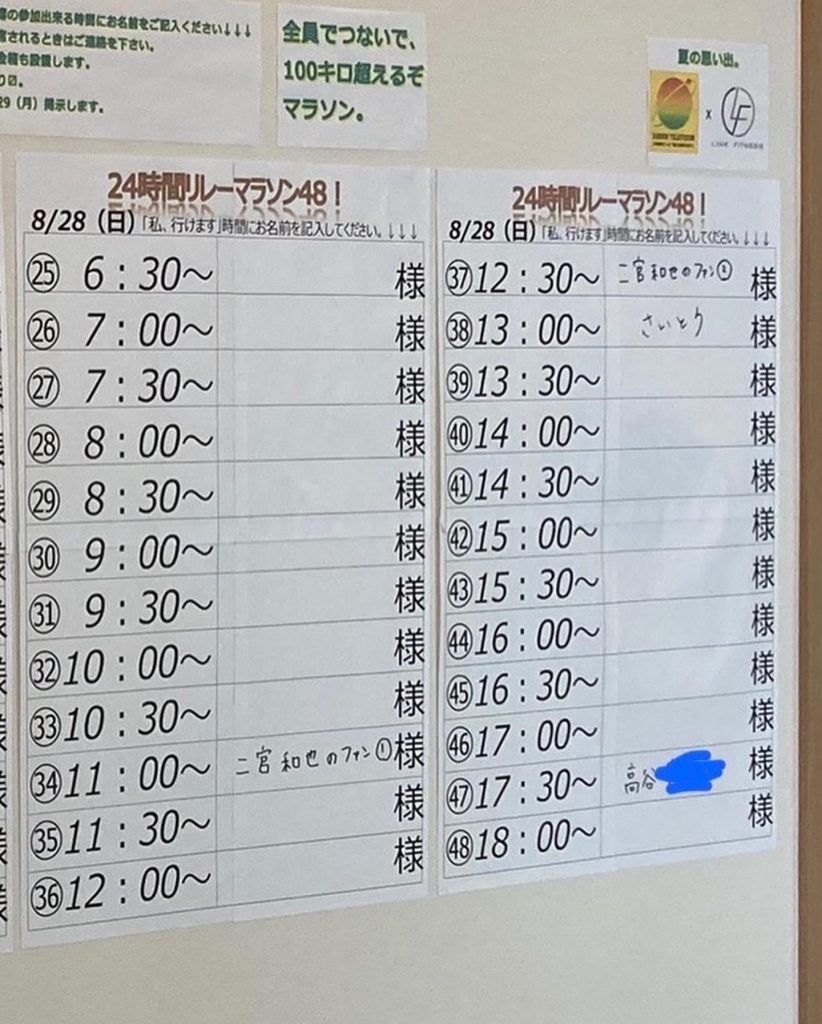 の参加出来る時間にお名前をご記入ください↓↓↓
されるときはご連絡を下さい。
も設置します。
29（月）掲示します。
全員でつないで、
100キロ超えるぞ
マラソン。
夏の思い出。
x
LF
24時間リレーマラソン48！
8/28（日）「私、行けます」時間にお名前を記入してください。↓↓↓
㉕ 6：30～ 様
㉖ 7：00～ 様
㉗ 7：30～ 様
㉘ 8：00～ 様
㉙ 8：30～ 様
㉚ 9：00～ 様
㉛ 9：30～ 様
㉜ 10：00～ 様
㉝ 10：30～ 様
㉞ 11：00～ 二宮和也のファン① 様
㉟ 11：30～ 様
㊱ 12：00～ 様
24時間リレーマラソン48！
8/28（日）「私、行けます」時間にお名前を記入してください。↓↓↓
㊲ 12：30～ 二宮和也のファン② 様
㊳ 13：00～ さいとう 様
㊴ 13：30～ 様
㊵ 14：00～ 様
㊶ 14：30～ 様
㊷ 15：00～ 様
㊸ 15：30～ 様
㊹ 16：00～ 様
㊺ 16：30～ 様
㊻ 17：00～ 様
㊼ 17：30～ 高谷 様
㊽ 18：00～ 様